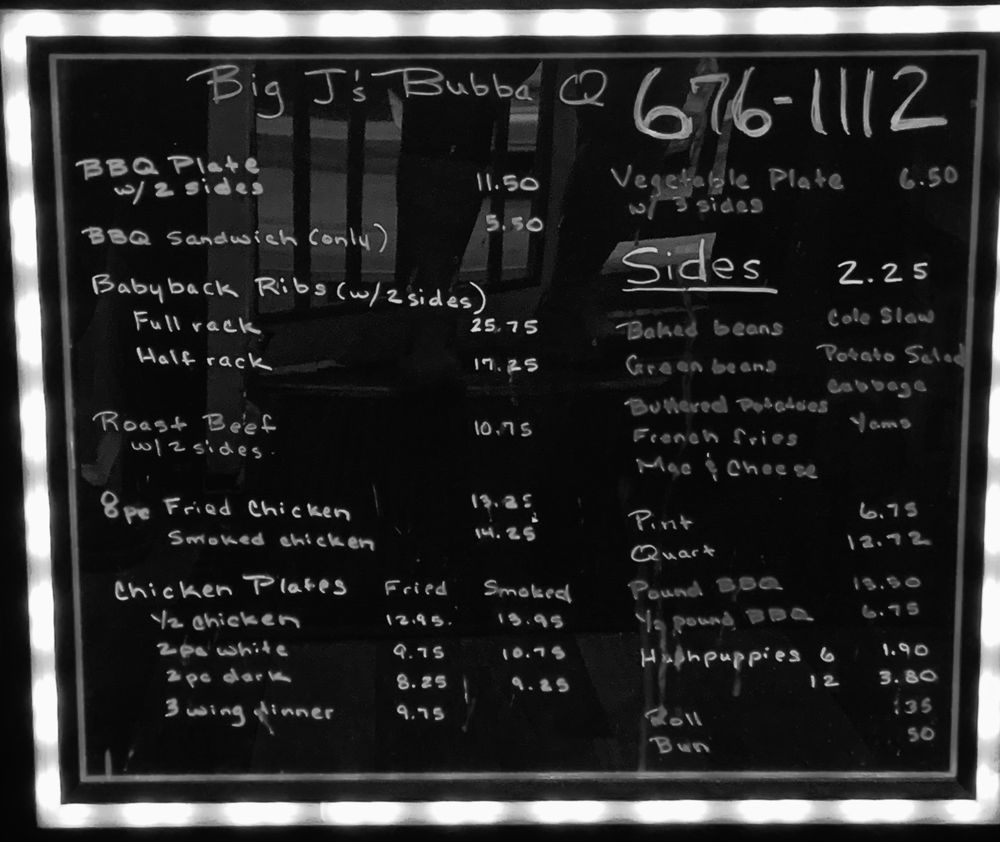 Big J's Bubba Q 676-1112
BBQ Plate
w/ 2 sides 11.50
BBQ Sandwich (only) 5.50
Babyback Ribs (w/ 2 sides)
Full rack 25.75
Half rack 17.25
Roast Beef 10.75
w/ 2 sides.
8 pc Fried Chicken 13.25
Smoked chicken 14.25
Chicken Plates Fried Smoked
1/2 chicken 12.95. 13.95
2 pc white 9.75 10.75
2 pc dark 8.25 9.25
3 wing dinner 9.75
Vegetable Plate 6.50
w/ 3 sides
Sides 2.25
Baked beans Cole Slaw
Green beans Potato Salad
Cabbage
Buttered Potatoes
Yams
French fries
Mac & Cheese
Pint 6.75
Quart 12.72
Pound BBQ 13.50
1/2 pound BBQ 6.75
Hushpuppies 6 1.90
12 3.80
Roll .35
Bun 50